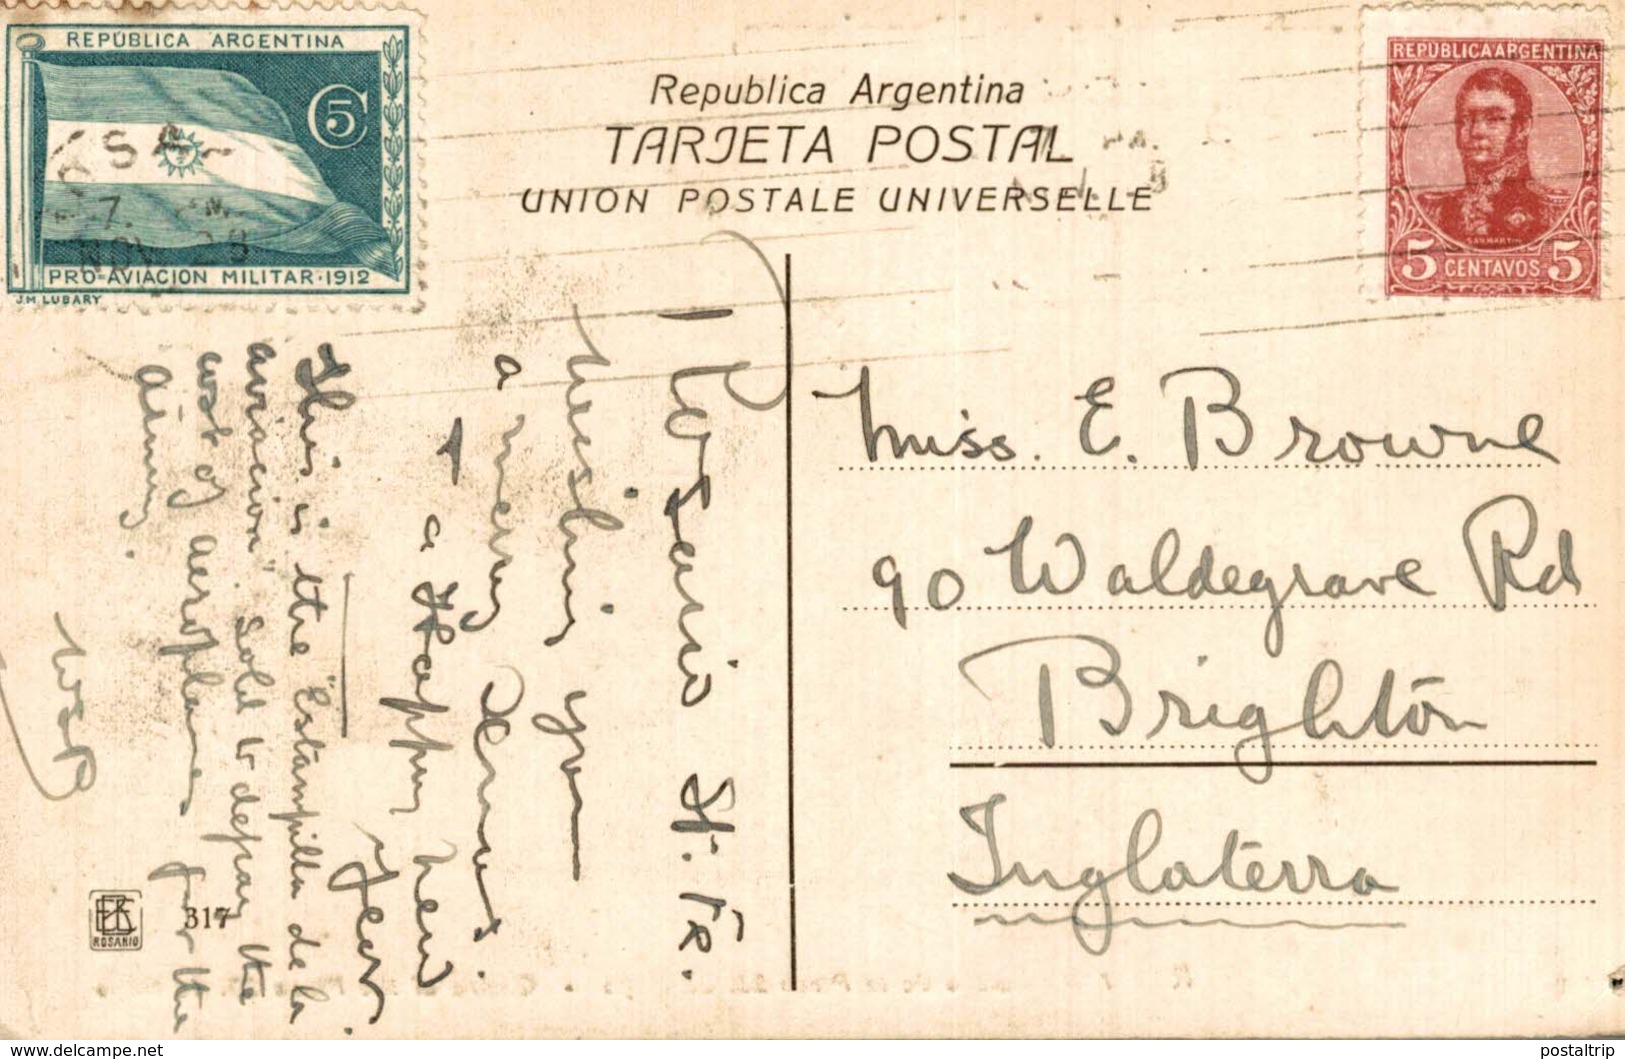 REPÚBLICA ARGENTINA
5 C
ROSA
7. PM.
NOV 28
PRO-AVIACION MILITAR·1912
J.M LUBARY
Republica Argentina
TARJETA POSTAL
UNION POSTALE UNIVERSELLE
REPUBLICA ARGENTINA
SAN MARTIN
5 CENTAVOS 5
Rosario St. Fe.
Wishing you
a very Xmas.
& a Happy New
Year.
This is the "Estampilla de la
aviacion" sold to defray the
cost of aeroplanes for the
Army.
Miss. E. Browne
90 Waldegrave Rd
Brighton
Inglaterra
EK
ROSARIO
317
delcampe.net
postaltrip